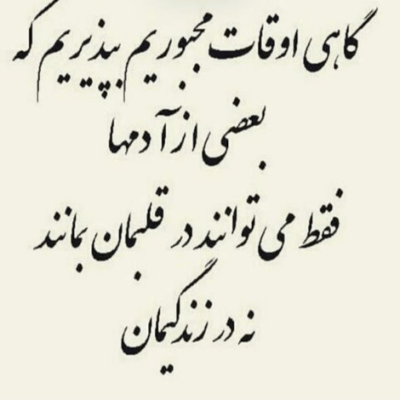 گاهی اوقات مجبوریم بپذیریم که
بعضی از آدمها
فقط می توانند در قلبمان بمانند
نه در زندگیمان